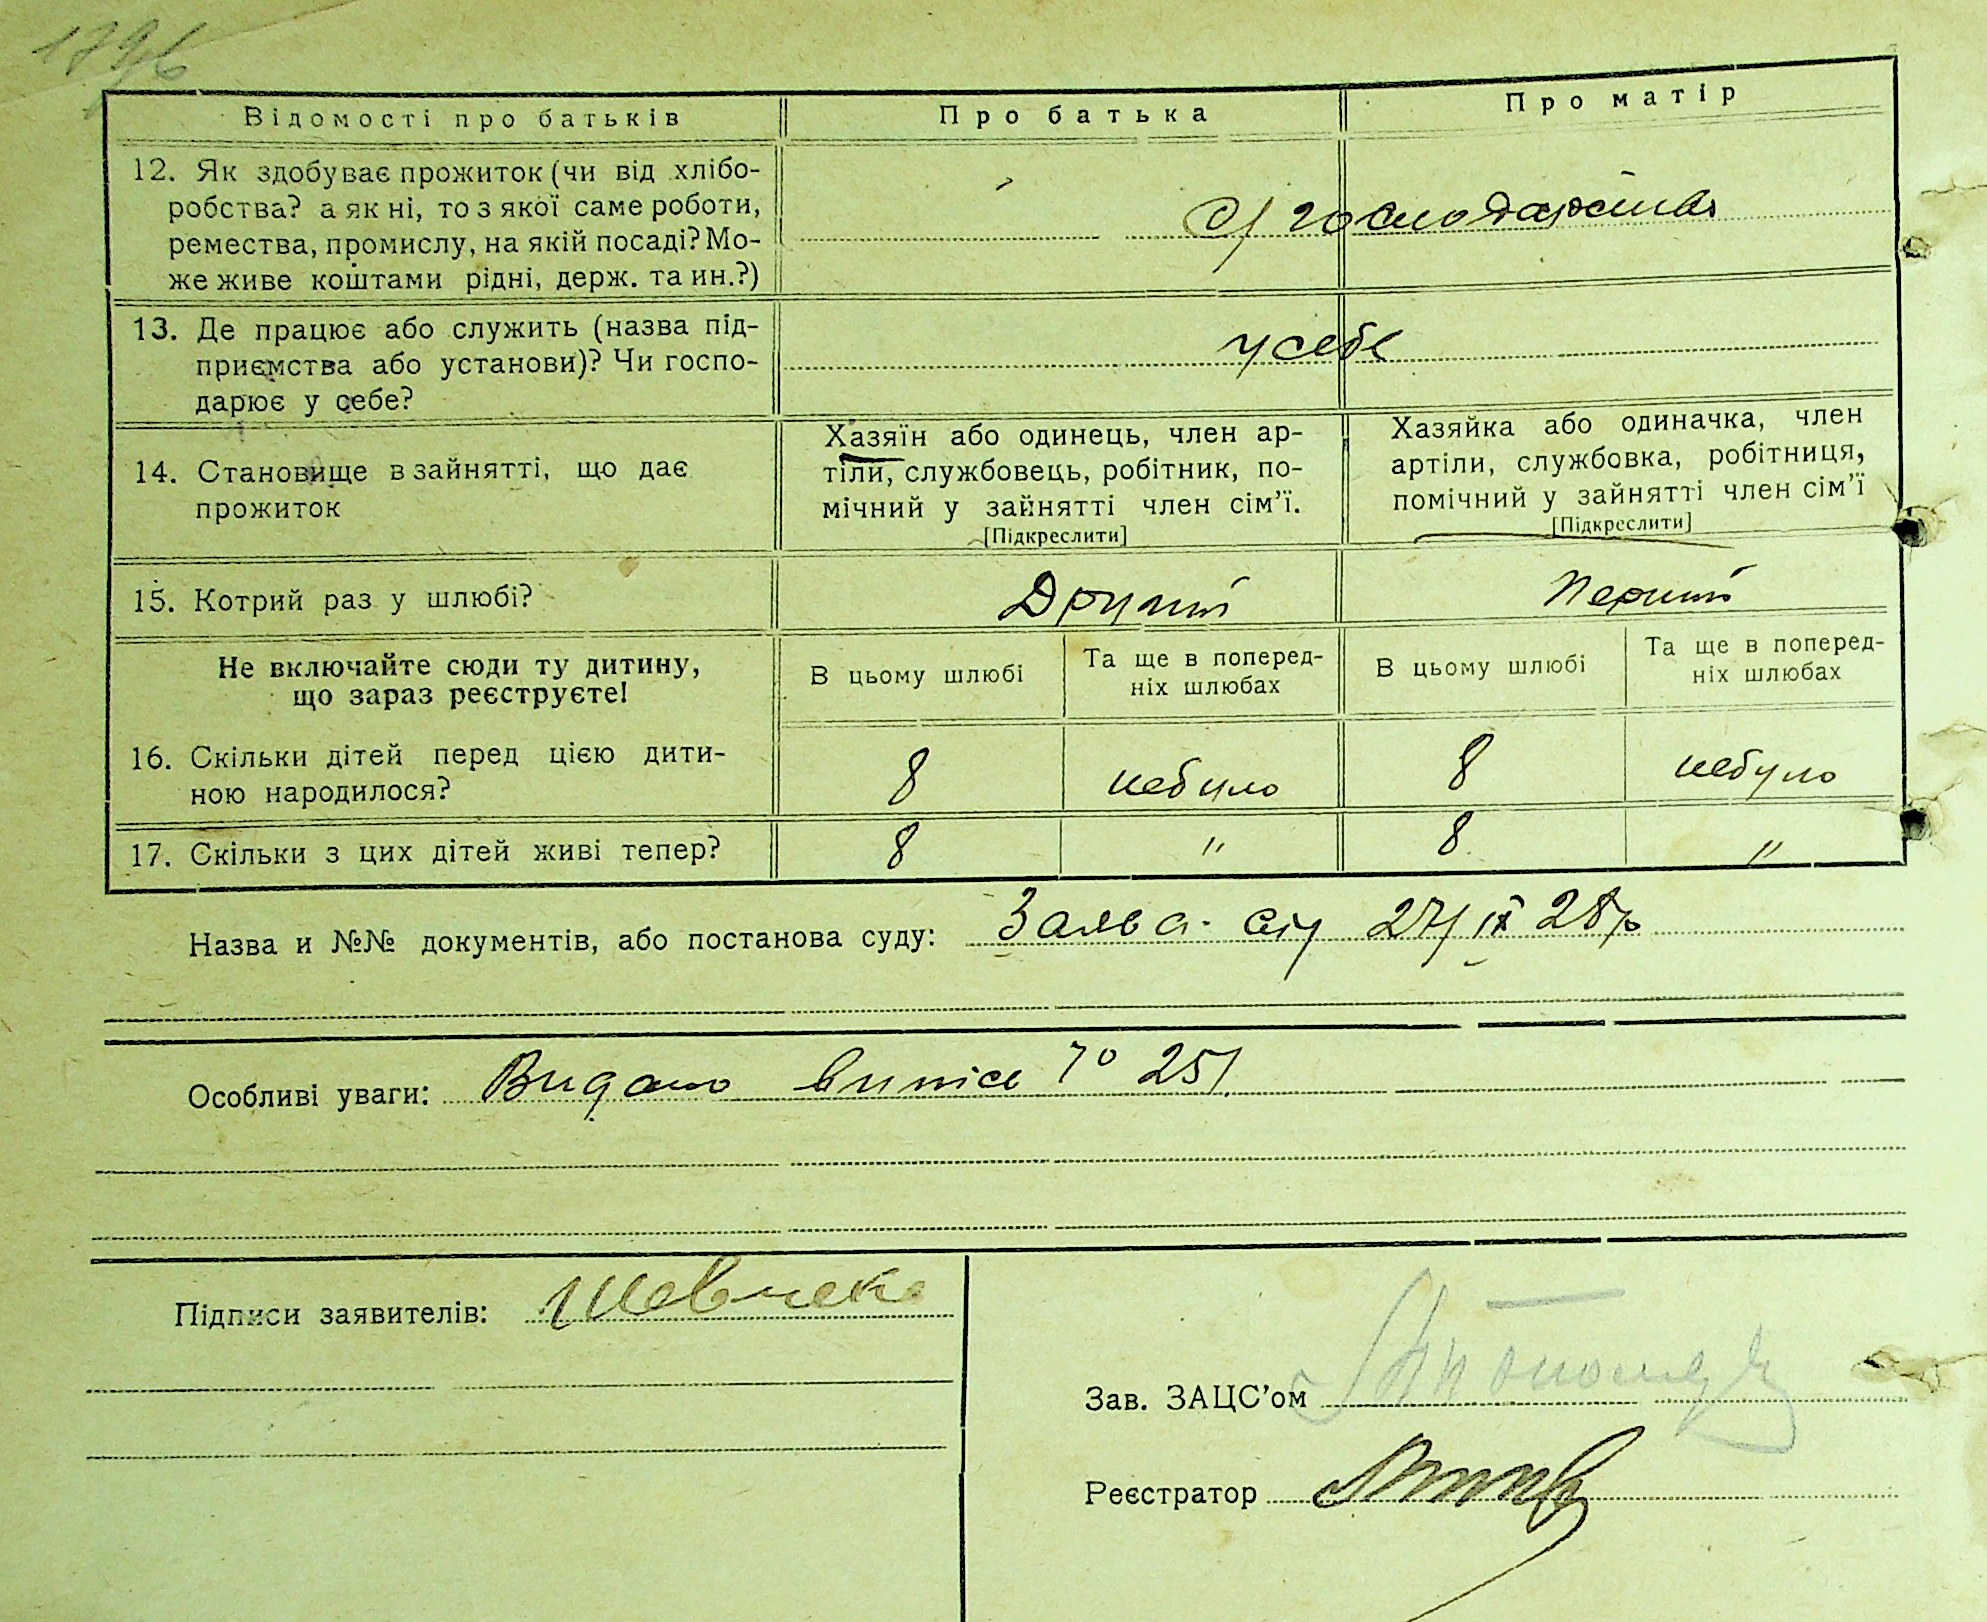 1796
Відомості про батьків Про батька Про матір
12. Як здобуває прожиток (чи від хлібо-
робства? а як ні, то з якої саме роботи,
ремества, промислу, на якій посаді? Мо-
же живе коштами рідні, держ. та ин.?)
С/господарства
13. Де працює або служить (назва під-
приємства або установи)? Чи госпо-
дарює у себе?
у себе
14. Становище в зайнятті, що дає
прожиток
Хазяїн або одинець, член ар-
тіли, службовець, робітник, по-
мічний у зайнятті член сім’ї.
[Підкреслити]
Хазяйка або одиначка, член
артіли, службовка, робітниця,
помічний у зайнятті член сім’ї
[Підкреслити]
15. Котрий раз у шлюбі? Другий Перший
Не включайте сюди ту дитину,
що зараз реєструєте!
В цьому шлюбі
Та ще в поперед-
ніх шлюбах
В цьому шлюбі
Та ще в поперед-
ніх шлюбах
16. Скільки дітей перед цією дити-
ною народилося?
8 небуло 8 небуло
17. Скільки з цих дітей живі тепер? 8 " 8 "
Назва и №№ документів, або постанова суду: Заява 28р
Особливі уваги: Видано випис 251
Підписи заявителів: Шевченко
Зав. ЗАЦС’ом
Реєстратор